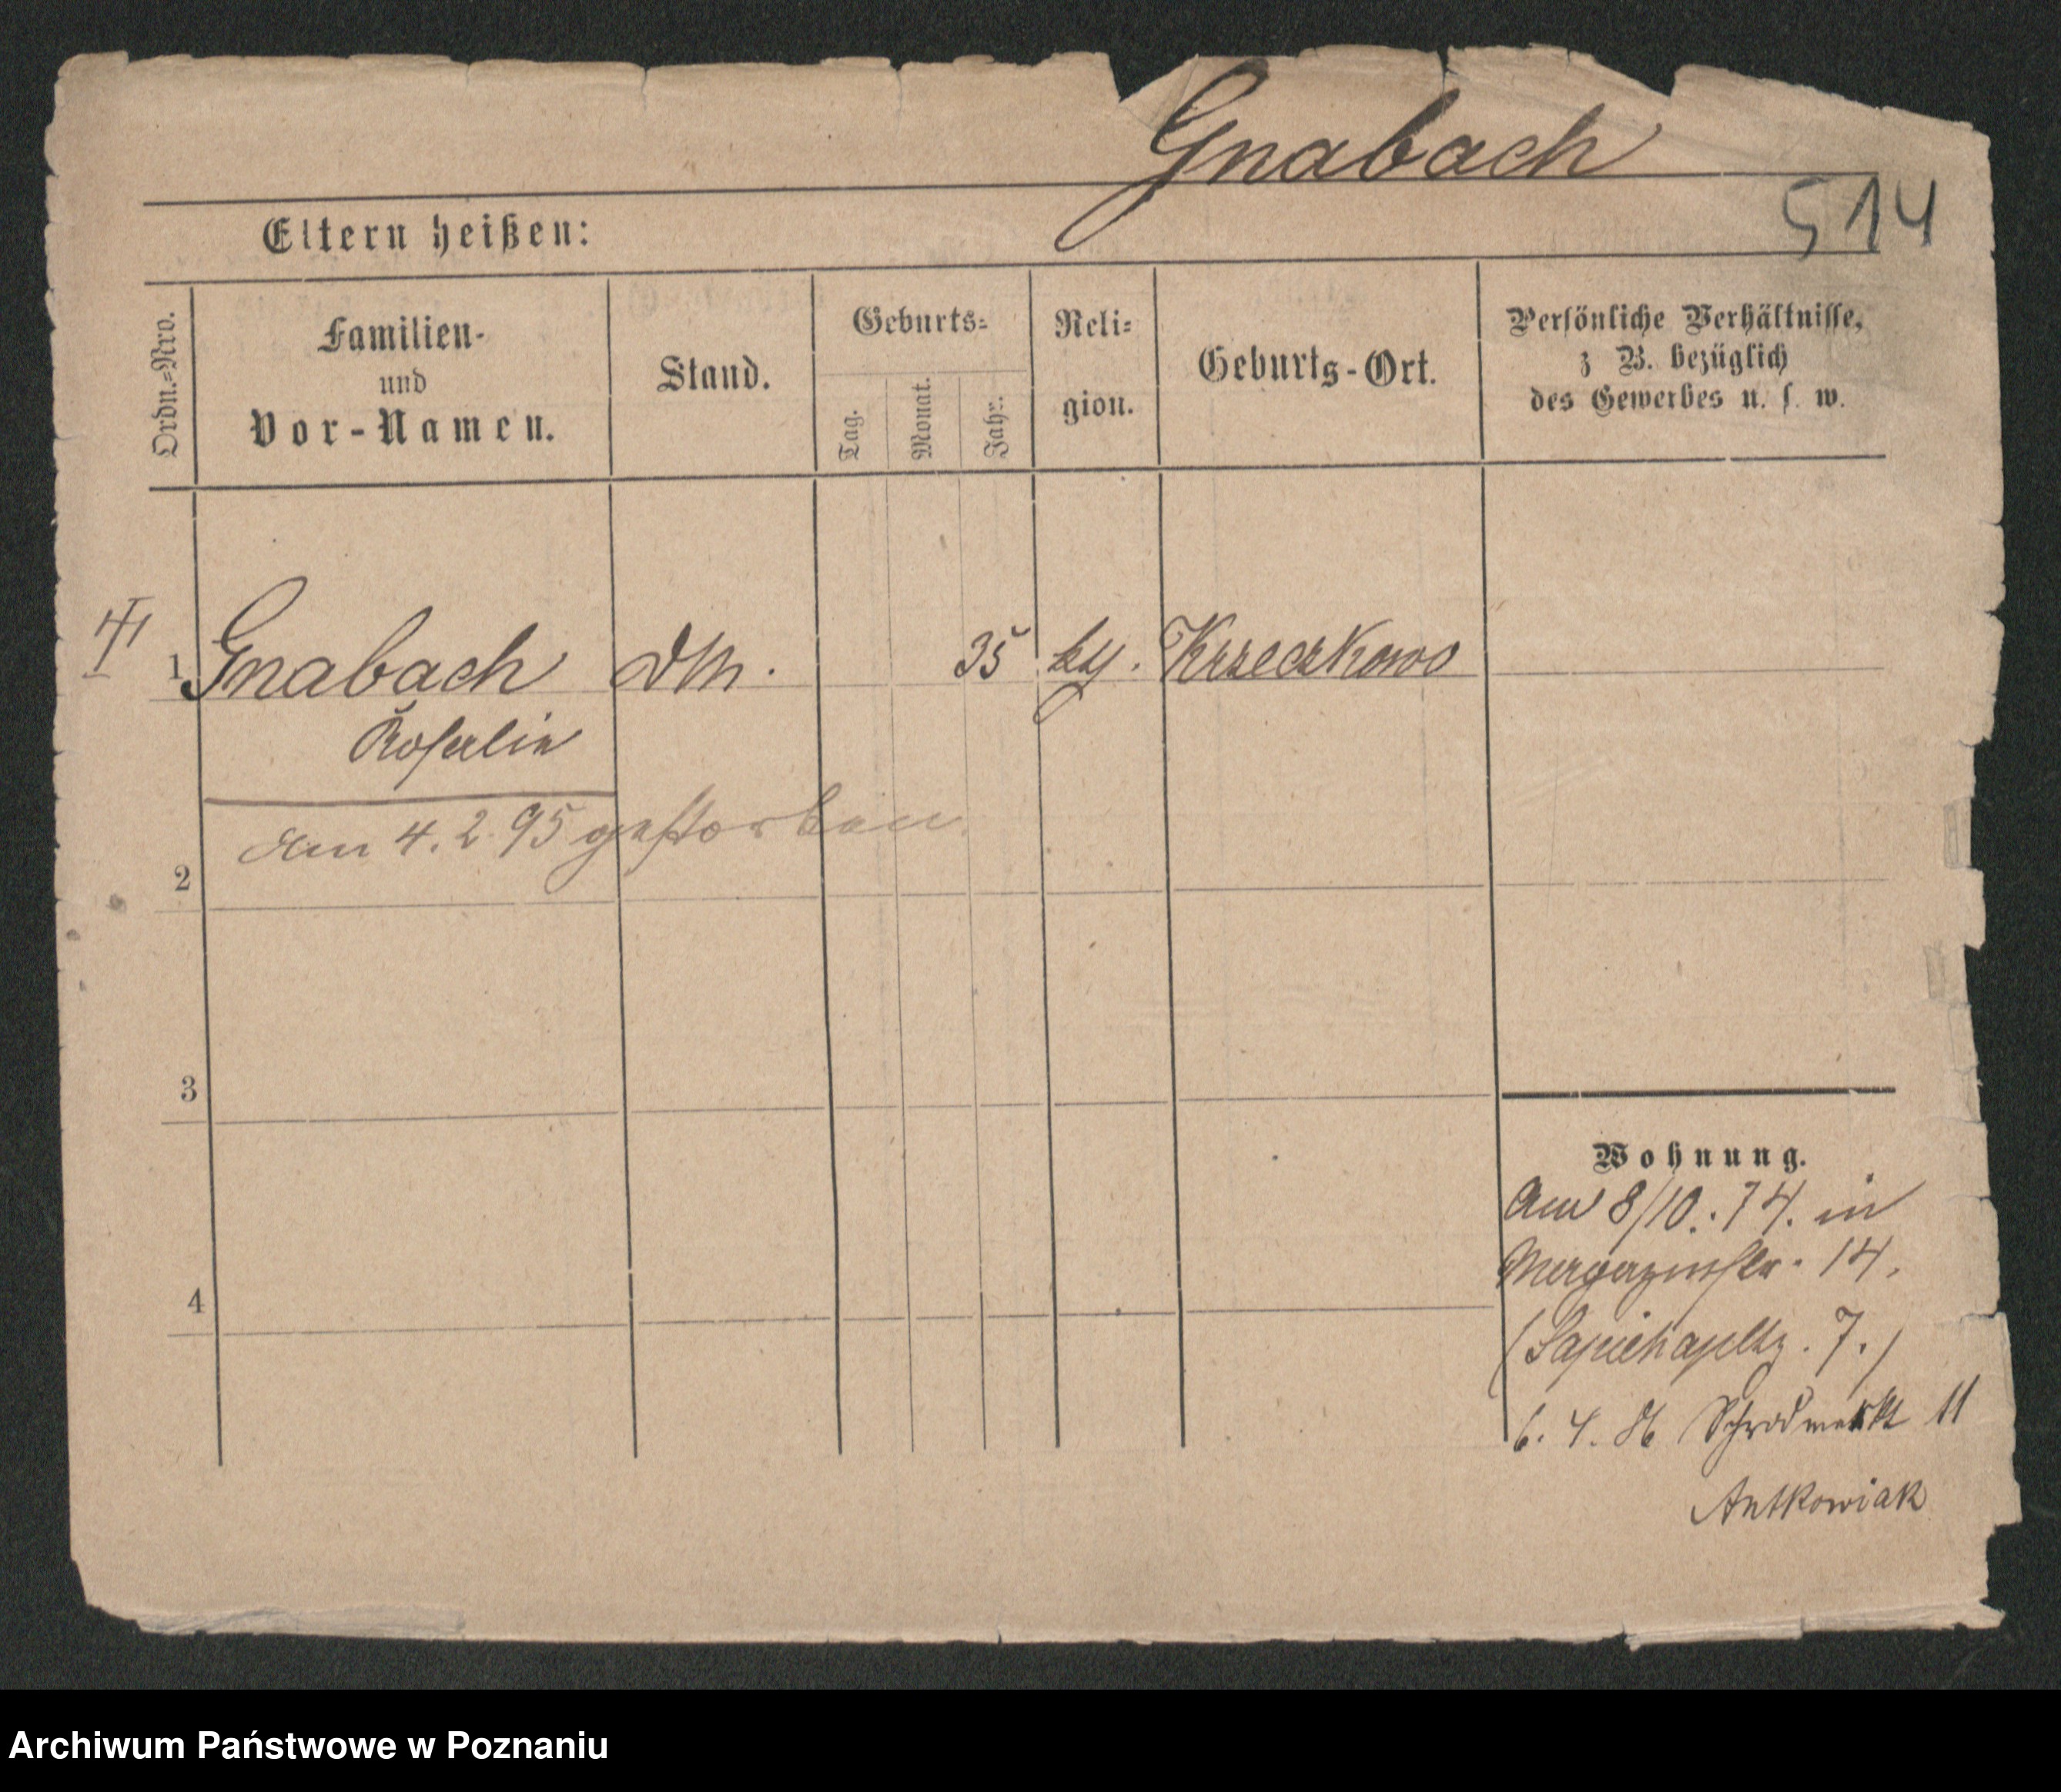 Gnabach
514
Eltern heißen:
Ordn.=Nro.
Familien-
und
Vor-Namen.
Stand.
Geburts=
Tag.
Monat.
Jahr.
Reli=
gion.
Geburts-Ort.
Persönliche Verhältnisse,
z B. bezüglich
des Gewerbes u. s. w.
1 Gnabach DM. 35 kth. Krzeczkowo
Rosalie
am 4. 2. 95 gestorben
2
3
4
Wohnung.
Am 8/10. 74. in
Magazinstr. 14.
(Sapiehapltz. 7.)
6. 4. 86 Schrodmarkt 11
Antkowiak
Archiwum Państwowe w Poznaniu